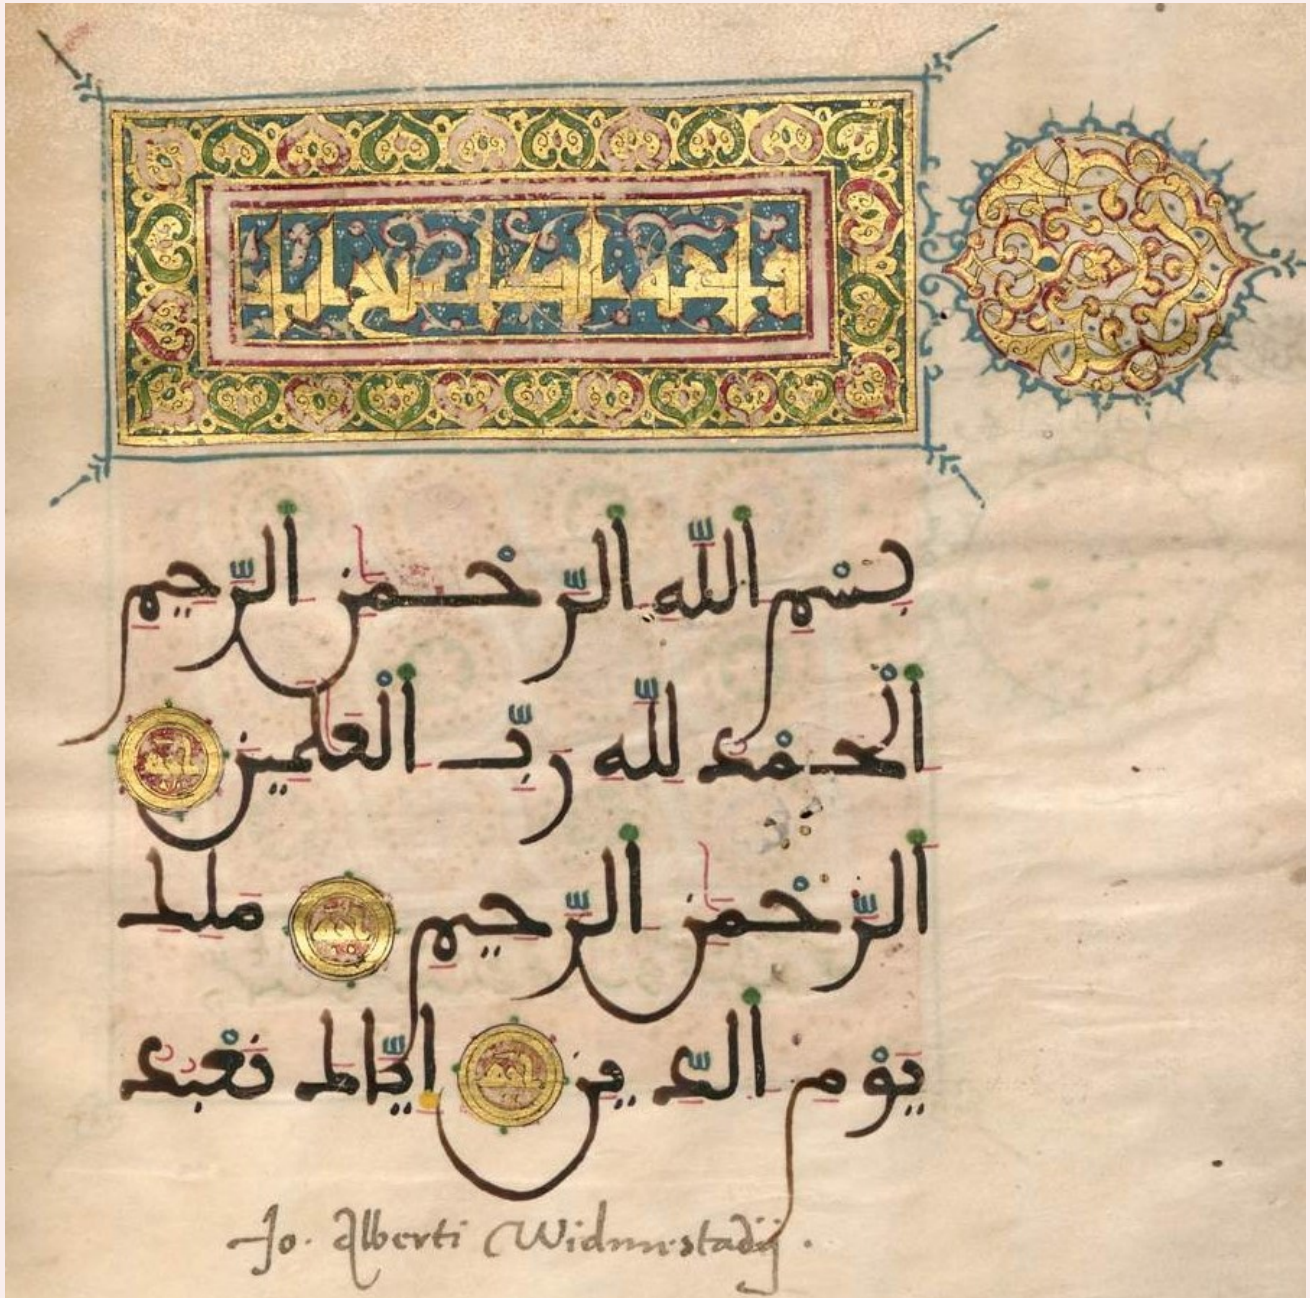 بِسْمِ اللَّهِ الرَّحْمَٰنِ الرَّحِيمِ
الْحَمْدُ لِلَّهِ رَبِّ الْعَٰلَمِينَ
الرَّحْمَٰنِ الرَّحِيمِ مَلِكِ
يَوْمِ الدِّينِ إِيَّاكَ نَعْبُدُ
Jo. Alberti Widmestadij.